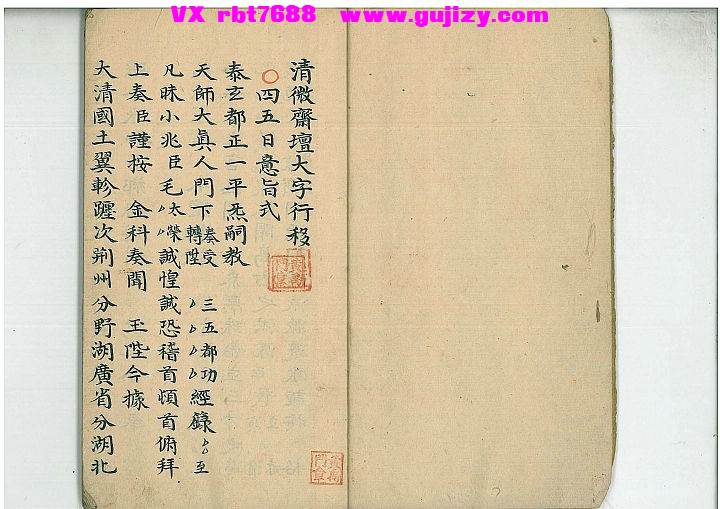 VX rbt7688 www.gujizy.com
清微齋壇大字行移
〇四五日意旨式
泰玄都正一平炁嗣教
天師大眞人門下奏受轉陞 三五都功經籙 至
凡昧小兆臣毛太榮誠惶誠恐稽首頓首俯拜
上奏臣謹按 金科奏聞 玉陛今據
大清國土翼軫躔次荆州分野湖廣省分湖北